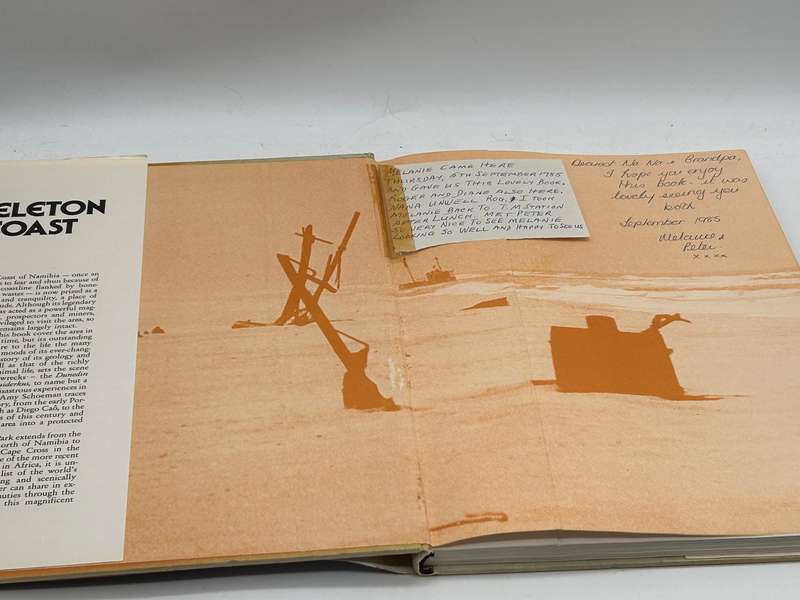 ELETON
OAST
Coast of Namibia — once an
to fear and shun because of
coastline flanked by bone-
wastes — is now prized as a
and tranquility, a place of
ude. Although its legendary
as acted as a powerful mag-
, prospectors and miners,
vileged to visit the area, so
emains largely intact.
his book cover the area in
time, but its outstanding
re to the life the many
moods of its ever-chang-
story of its geology and
ll as that of the richly
nimal life, sets the scene
wrecks — the Dunedin
to name but a
isastrous experiences in
Amy Schoeman traces
ry, from the early Por-
h as Diego Caõ, to the
s of this century and
area into a protected
Park extends from the
north of Namibia to
Cape Cross in the
e of the more recent
in Africa, it is un-
list of the world's
ng and scenically
er can share in ex-
uties through the
this magnificent
MELANIE CAME HERE
THURSDAY, 5TH SEPTEMBER 1985
AND GAVE US THIS LOVELY BOOK.
ROGER AND DIANE ALSO HERE.
NANA UNWELL ROG, & I TOOK
MELANIE BACK TO T.M STATION
AFTER LUNCH. MET PETER
SO VERY NICE TO SEE MELANIE
LOOKING SO WELL AND HAPPY TO SEE US
Dearest Na Na & Grandpa,
I hope you enjoy
this book - it was
lovely seeing you
both
September 1985
Melanie &
Peter
x x x x